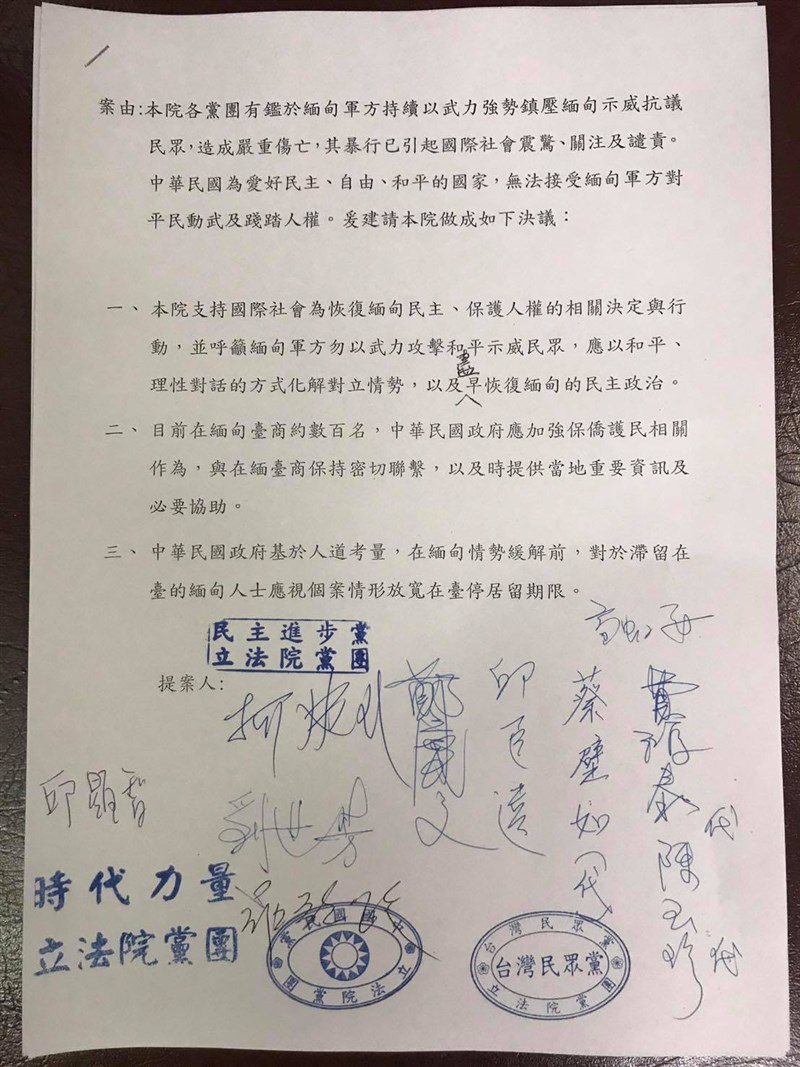 案由:本院各黨團有鑑於緬甸軍方持續以武力強勢鎮壓緬甸示威抗議
民眾,造成嚴重傷亡,其暴行已引起國際社會震驚、關注及譴責。
中華民國為愛好民主、自由、和平的國家,無法接受緬甸軍方對
平民動武及踐踏人權。爰建請本院做成如下決議:
一、本院支持國際社會為恢復緬甸民主、保護人權的相關決定與行
動,並呼籲緬甸軍方勿以武力攻擊和平示威民眾,應以和平、
理性對話的方式化解對立情勢,以及盡早恢復緬甸的民主政治。
二、目前在緬甸臺商約數百名,中華民國政府應加強保僑護民相關
作為,與在緬臺商保持密切聯繫,以及時提供當地重要資訊及
必要協助。
三、中華民國政府基於人道考量,在緬甸情勢緩解前,對於滯留在
臺的緬甸人士應視個案情形放寬在臺停居留期限。
民主進步黨
立法院黨團
提案人:
邱臣遠
蔡壁如(代)
陳玉珍 代
費鴻泰 代
鄭麗文
劉世芳
邱顯智
時代力量
立法院黨團
中國國民黨
立法院黨團
台灣民眾黨
台灣民眾黨
立法院黨團